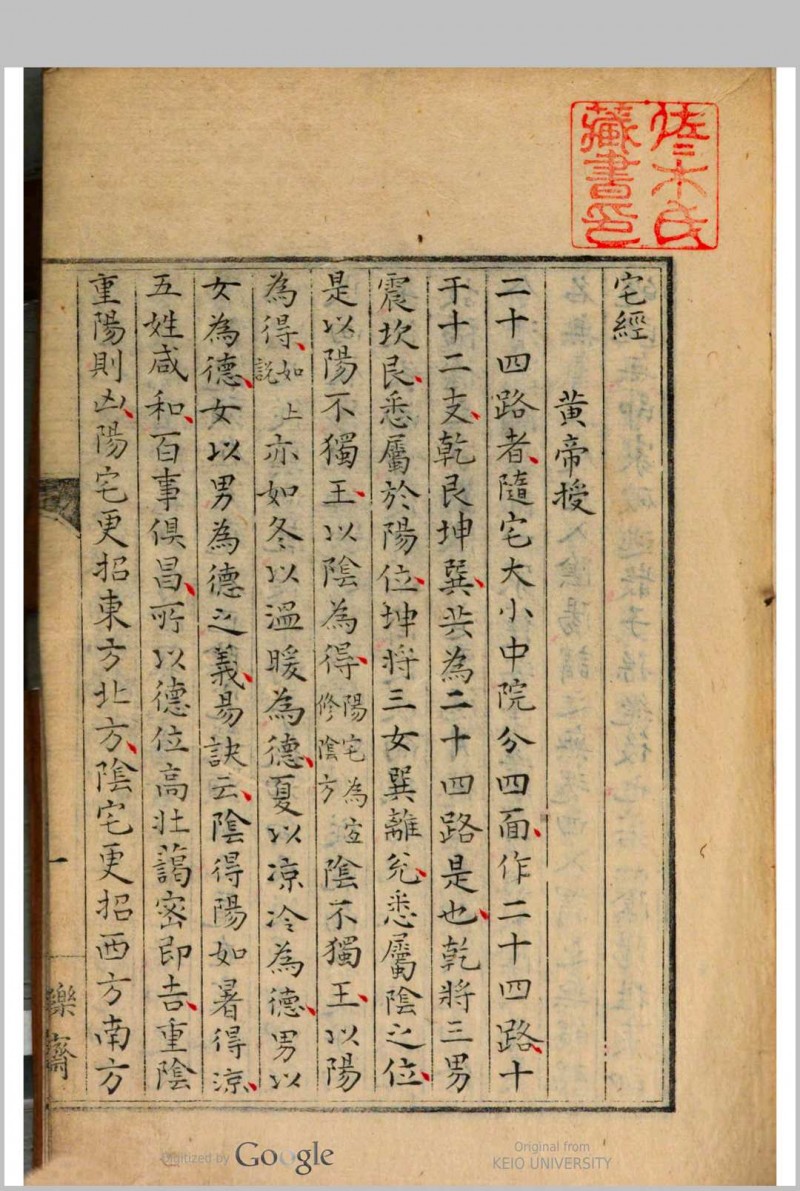 佐々木氏
藏書印
宅經
黄帝授
二十四路者隨宅大小中院分四面作二十四路十
干十二支乾艮坤巽共為二十四路是也乾將三男
震坎艮悉屬於陽位坤將三女巽離兊悉屬陰之位
是以陽不獨王以陰為得陽宅為宜修陰方陰不獨王以陽
為得如上説亦如冬以溫暖為德夏以凉冷為德男以
女為德女以男為德之義易訣云陰得陽如暑得凉
五姓咸和百事俱昌所以德位高壮藹密即吉重陰
重陽則凶陽宅更招東方北方陰宅更招西方南方
一
樂齋
Digitized by Google
Original from
KEIO UNIVERSITY